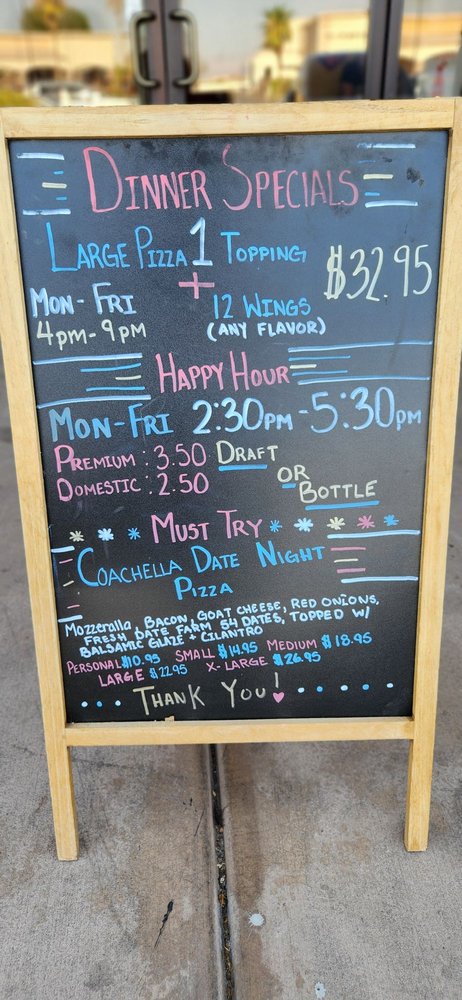 Dinner Specials
Large Pizza 1 Topping
+
$32.95
Mon-Fri
4pm-9pm
12 Wings
(Any Flavor)
Happy Hour
Mon-Fri 2:30pm-5:30pm
Premium: 3.50 Draft
Domestic: 2.50
or
Bottle
Must Try
Coachella Date Night
Pizza
Mozzeralla, Bacon, Goat Cheese, Red Onions,
Fresh Date Farm 54 Dates, Topped w/
Balsamic Glaze + Cilantro
Personal $10.95 Small $14.95 Medium $18.95
Large $22.95 X-Large $26.95
Thank You!